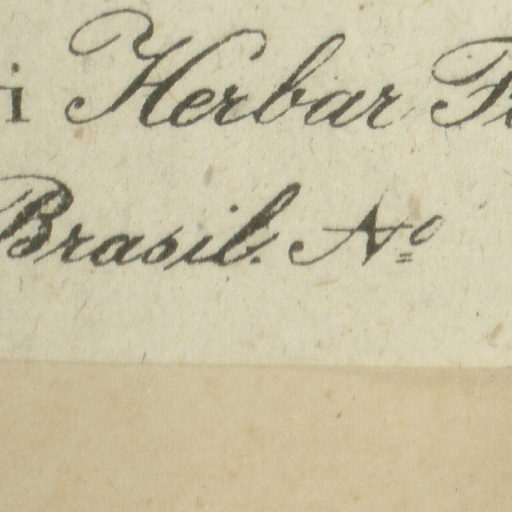 i Herbar F
Brasil. Nº